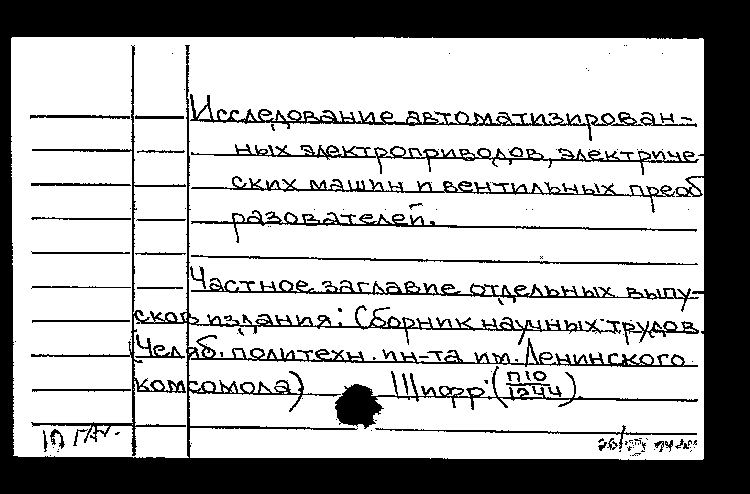 Исследование автоматизирован-
ных электроприводов, электриче-
ских машин и вентильных преоб
разователей.
Частное заглавие отдельных выпу-
сков издания: Сборник научных трудов.
(Челяб. политехн. ин-та им. Ленинского
комсомола) Шифр: (П10/1244).
10